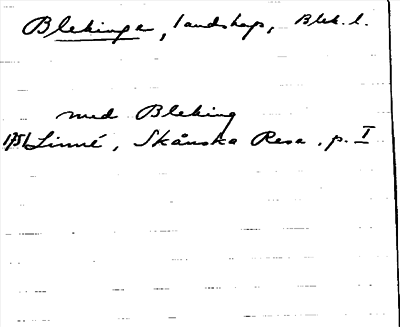 Blekinge, landskap, Blek. l.
med Bleking
1751 Linné, Skånska Resa, p. I